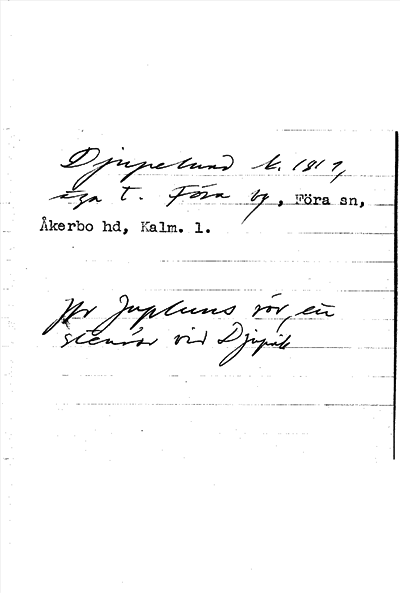 Djupelund k. 1817,
äga t. Föra by, Föra sn,
Åkerbo hd, Kalm. l.
Jupluns rör, en
stenrör vid Djupvik